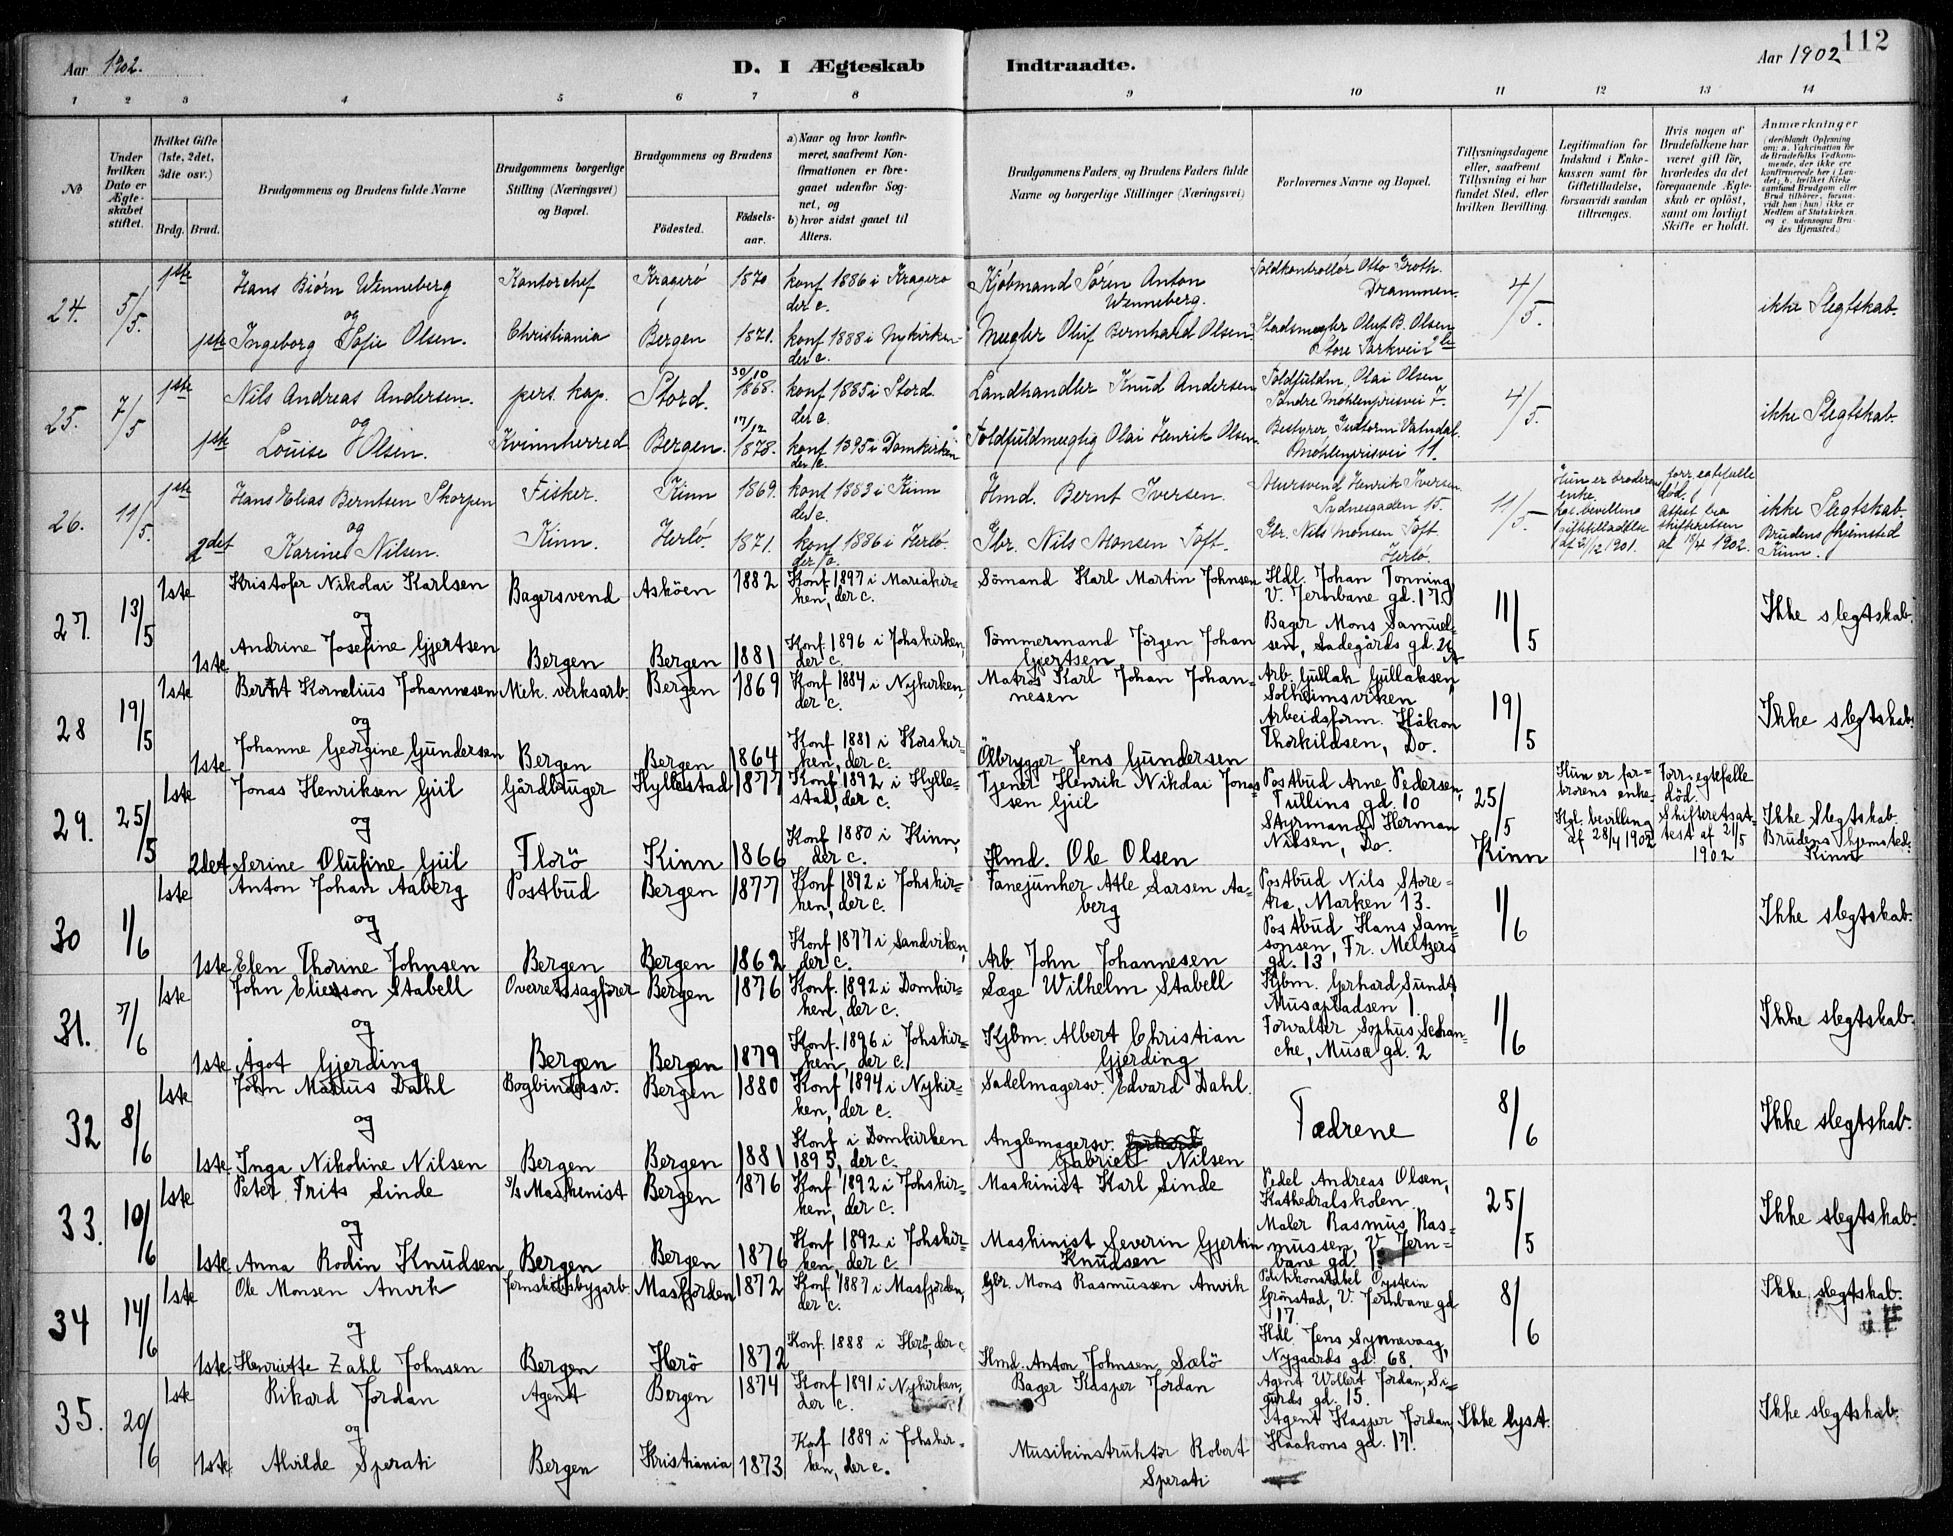 Aar 1902.
D. I Ægteskab Indtraadte.
Aar 1902
112
1 2 3 4 5 6 7 8 9 10 11 12 13 14
No
Under hvilken Dato er Ægteskabet stiftet.
Hvilket Gifte (1ste, 2det, 3die osv.)
Brdg. Brud.
Brudgommens og Brudens fulde Navne
Brudgommens borgerlige Stilling (Næringsvei) og Bopæl.
Brudgommens og Brudens
Födested.
Födselsaar.
a) Naar og hvor konfirmeret, saafremt Konfirmationen er foregaaet udenfor Sognet, og
b) hvor sidst gaaet til Alters.
Brudgommens Faders og Brudens Faders fulde Navne og borgerlige Stillinger (Næringsvei)
Forlovernes Navne og Bopæl.
Tillysningsdagene eller, saafremt Tillysning ei har fundet Sted, efter hvilken Bevilling.
Legitimation for Indskud i Enkekassen samt for Giftetilladelse, forsaavidt saadan tiltrænges.
Hvis nogen af Brudefolkene har været gift för, hvorledes da det foregaaende Ægteskab er oplöst, samt om lovligt Skifte er holdt.
Anmærkninger (deriblandt Oplysning om: a. Vakcination for de Brudefolks Vedkommende, der ikke ere konfirmerede her i Landet; b. hvilket Kirkesamfund Brudgom eller Brud tilhörer, forsaavidt han (hun) ikke er Medlem af Statskirken, og c. udensogns Brudes Hjemsted.)
24. 5/5. 1ste Hans Biörn Wenneberg Kontorchef Kragerö 1870 konf 1886 i Kragerö der c. Kjöbmand Sören Anton Wenneberg. Toldkontrollör Otto Groth. Drammen. 4/5. ikke Slegtskab.
og
1ste Ingeborg Sofie Olsen. Christiania Bergen 1871. konf 1888 i Nykirken der c. Megler Oluf Bernhard Olsen. Stadsmegler Oluf B. Olsen Store Parkvei 2
25. 7/5 1ste Nils Andreas Andersen. pers. kap. Stord. 30/10 1868. konf 1885 i Stord. der c. Landhandler Knud Andersen Toldfuldm. Olai Olsen Söndre Möhlenprisvei 7. 4/5. ikke Slegtskab.
og
1ste Louise Olsen. Kvinnherred Bergen. 17/12 1878. konf 1895 i Domkirken der c. Toldfuldmegtig Olai Henrik Olsen. Bestyrer Guttorm Vatndal. Möhlenprisvei 11.
26. 11/5. 1ste Hans Elias Berntsen Skorpen Fisker. Kinn 1869. konf 1883 i Kinn der c. Hmd. Bernt Iversen. Murersvend Henrik Iversen Sydnesgaden 15. 11/5. Hun er broderens enke. 1902. ikke Slegtskab. Brudens Hjemsted Kinn.
og
2det Karine Nilsen. Kinn. Herlö. 1871. konf 1886 i Herlö. der c. Gbr. Nils Monsen Toft. Gbr. Nils Monsen Toft Herlö.
27. 13/5 1ste Kristofer Nikolai Karlsen Bagersvend Asköen 1882 Konf. 1897 i Mariakirken, der c. Sömand Karl Martin Johnsen Hdl. Johan Tonning V. Jernbane gd. 17 11/5 Ikke slegtskab.
og
1ste Andrine Josefine Gjertsen Bergen Bergen 1881 Konf. 1896 i Johskirken, der c. Tömmermand Jörgen Johan Gjertsen Bager Mons Samuelsen, Ladegårds gd.
28 19/5 1ste Bernt Kornelius Johannesen Mek. verksarb. Bergen 1869 Konf. 1884 i Nykirken, der c. Matros Karl Johan Johannesen Arb. Gullak Gullaksen, Solheimsviken 19/5 Ikke slegtskab.
og
1ste Johanne Georgine Gundersen Bergen Bergen 1864 Konf 1881 i Korskirken, der c. Ölbrygger Jens Gundersen Arbeidsform. Håkon Thorkildsen, Do.
29. 25/5 1ste Jonas Henriksen Giil Gårdbruger Hyllestad 1877 Konf. 1892 i Hyllestad, der c. Tjener Henrik Nikolai Jonassen Giil Postbud Arne Pedersen, Tullins gd. 10 25/5 Kinn Hun er farbrorens enke. Kgl. bevilling af 28/4 1902 Forr. egtefælle död. Skifteretsattest af 21/5 1902 Ikke Slegtskab. Brudens hjemsted: Kinn
og
2det Serine Olufine Giil Florö Kinn 1866 Konf. 1880 i Kinn, der c. Hmd. Ole Olsen Styrmand Herman Nilsen, Do.
30 1/6 1ste Anton Johan Aaberg Postbud Bergen 1877 Konf. 1892 i Johskirken, der c. Fanejunker Atle Larsen Aaberg Postbud Nils Storetra, Marken 13. 1/6 Ikke slegtskab.
og
1ste Elen Thorine Johnsen Bergen Bergen 1862 Konf. 1877 i Sandviken, der c. Arb. John Johannesen Postbud Hans Samsonsen, Fr. Meltzers gd. 13
31. 7/6 1ste John Eliesson Stabell Overretssagförer Bergen 1876 Konf. 1892 i Domkirken, der c. Læge Wilhelm Stabell Kjbm. Gerhard Sundt Musæpladsen 1. 1/6 Ikke slegtskab.
og
1ste Ågot Gjerding Bergen Bergen 1879 Konf. 1896 i Johskirken, der c. Kjbm. Albert Christian Gjerding Forvalter Sophus Schancke, Musæ gd. 2
32 8/6 1ste John Marius Dahl Bogbindersv. Bergen 1880 Konf 1894 i Nykirken, der c. Sadelmagersv. Edvard Dahl. Fædrene 8/6 Ikke slegtskab.
og
1ste Inga Nikoline Nilsen Bergen Bergen 1881 Konf i Domkirken 1895, der c. Anglemagersv. Gabriel Nilsen
33. 10/6 1ste Peter Frits Linde S/s Maskinist Bergen 1876 Konf. 1892 i Johskirken, der c. Maskinist Karl Linde Pedel Andreas Olsen, Kathedralskolen 25/5 Ikke slegtskab.
og
1ste Anna Rodin Knudsen Bergen Bergen 1876 Konf 1892 i Johskirken, der c. Maskinist Severin Gjertin Knudsen Maler Rasmus Rasmussen, V. Jernbane gd.
34 14/6 1ste Ole Monsen Anvik Jernskibsbygarb. Masfjorden 1872 Konf 1887 i Masfjorden, der c. Gbr. Mons Rasmussen Anvik Politikonstabel Öystein Grönstad, V. Jernbane gd 17. 8/6 Ikke slegtskab.
og
1ste Henriette Zahl Johnsen Bergen Herö 1872 Konf. 1888 i Herö, der c Hmd. Anton Johnsen Sælö Hdl Jens Synnevaag, Nygaards gd. 68.
35. 20/6 1ste Rikard Jordan Agent Bergen 1874 Konf 1891 i Nykirken, der c. Bager Kasper Jordan Agent Wollert Jordan, Sigurds gd. 15. Ikke lyst. Ikke slegtskab.
og
1ste Alvilde Sperati Bergen Kristiania 1873 Konf 1889 i Johskirken, der c. Musikinstruktör Robert Sperati Agent Kasper Jordan, Haakons gd. 17.